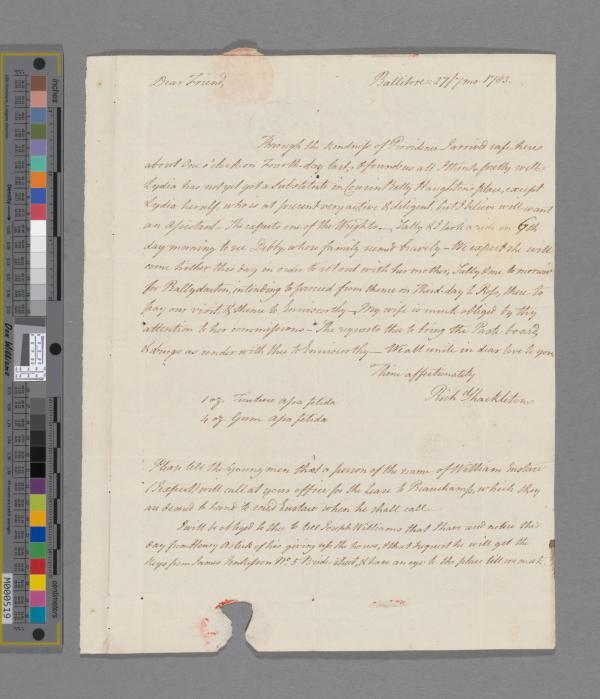 Dear Friend, Ballitore 27/7 mo. 1783.
Through the kindness of Providence I arrived safe here
about One o'clock on Fourth-day last, & found us all I think pretty well
Lydia has not yet got a Substitute in Cousin Betty Haughton's place, except
Lydia herself, who is at present very active & diligent, but I believe will want
an Assistant. She expects one of the Wrights. Sally & I took a ride on 6th
day morning to see Debby, whose family seemed bravely - We expect she will
come hither this day in order to set out with her mother, Sally & me to morrow
for Ballydarton, intending to proceed from thence on Third-day to Ross, there to
pay our visit & thence to Enniscorthy - My wife is much obliged by thy
attention to her commissions - She requests thee to bring the Paste-board
& drugs as under with thee to Enniscorthy - We all unite in dear love to you
Thine affectionately
Rich Shackleton
1 oz. Tincture Assa fetida
4 oz Gum Assa fetida
Please tell the Young men that a person of the name of William
(I expect) will call at your office for the Lease to Beauchamp, which they
are desired to hand to when he shall call
I will be obliged to thee to tell Joseph Williams that I have recd notice this
day from Henry of his giving up the house, & that I request he will get the
Keys from James No 5 Bride Street, & have an eye to the place till we meet
inches
centimeters
Density
Don Williams
M000519